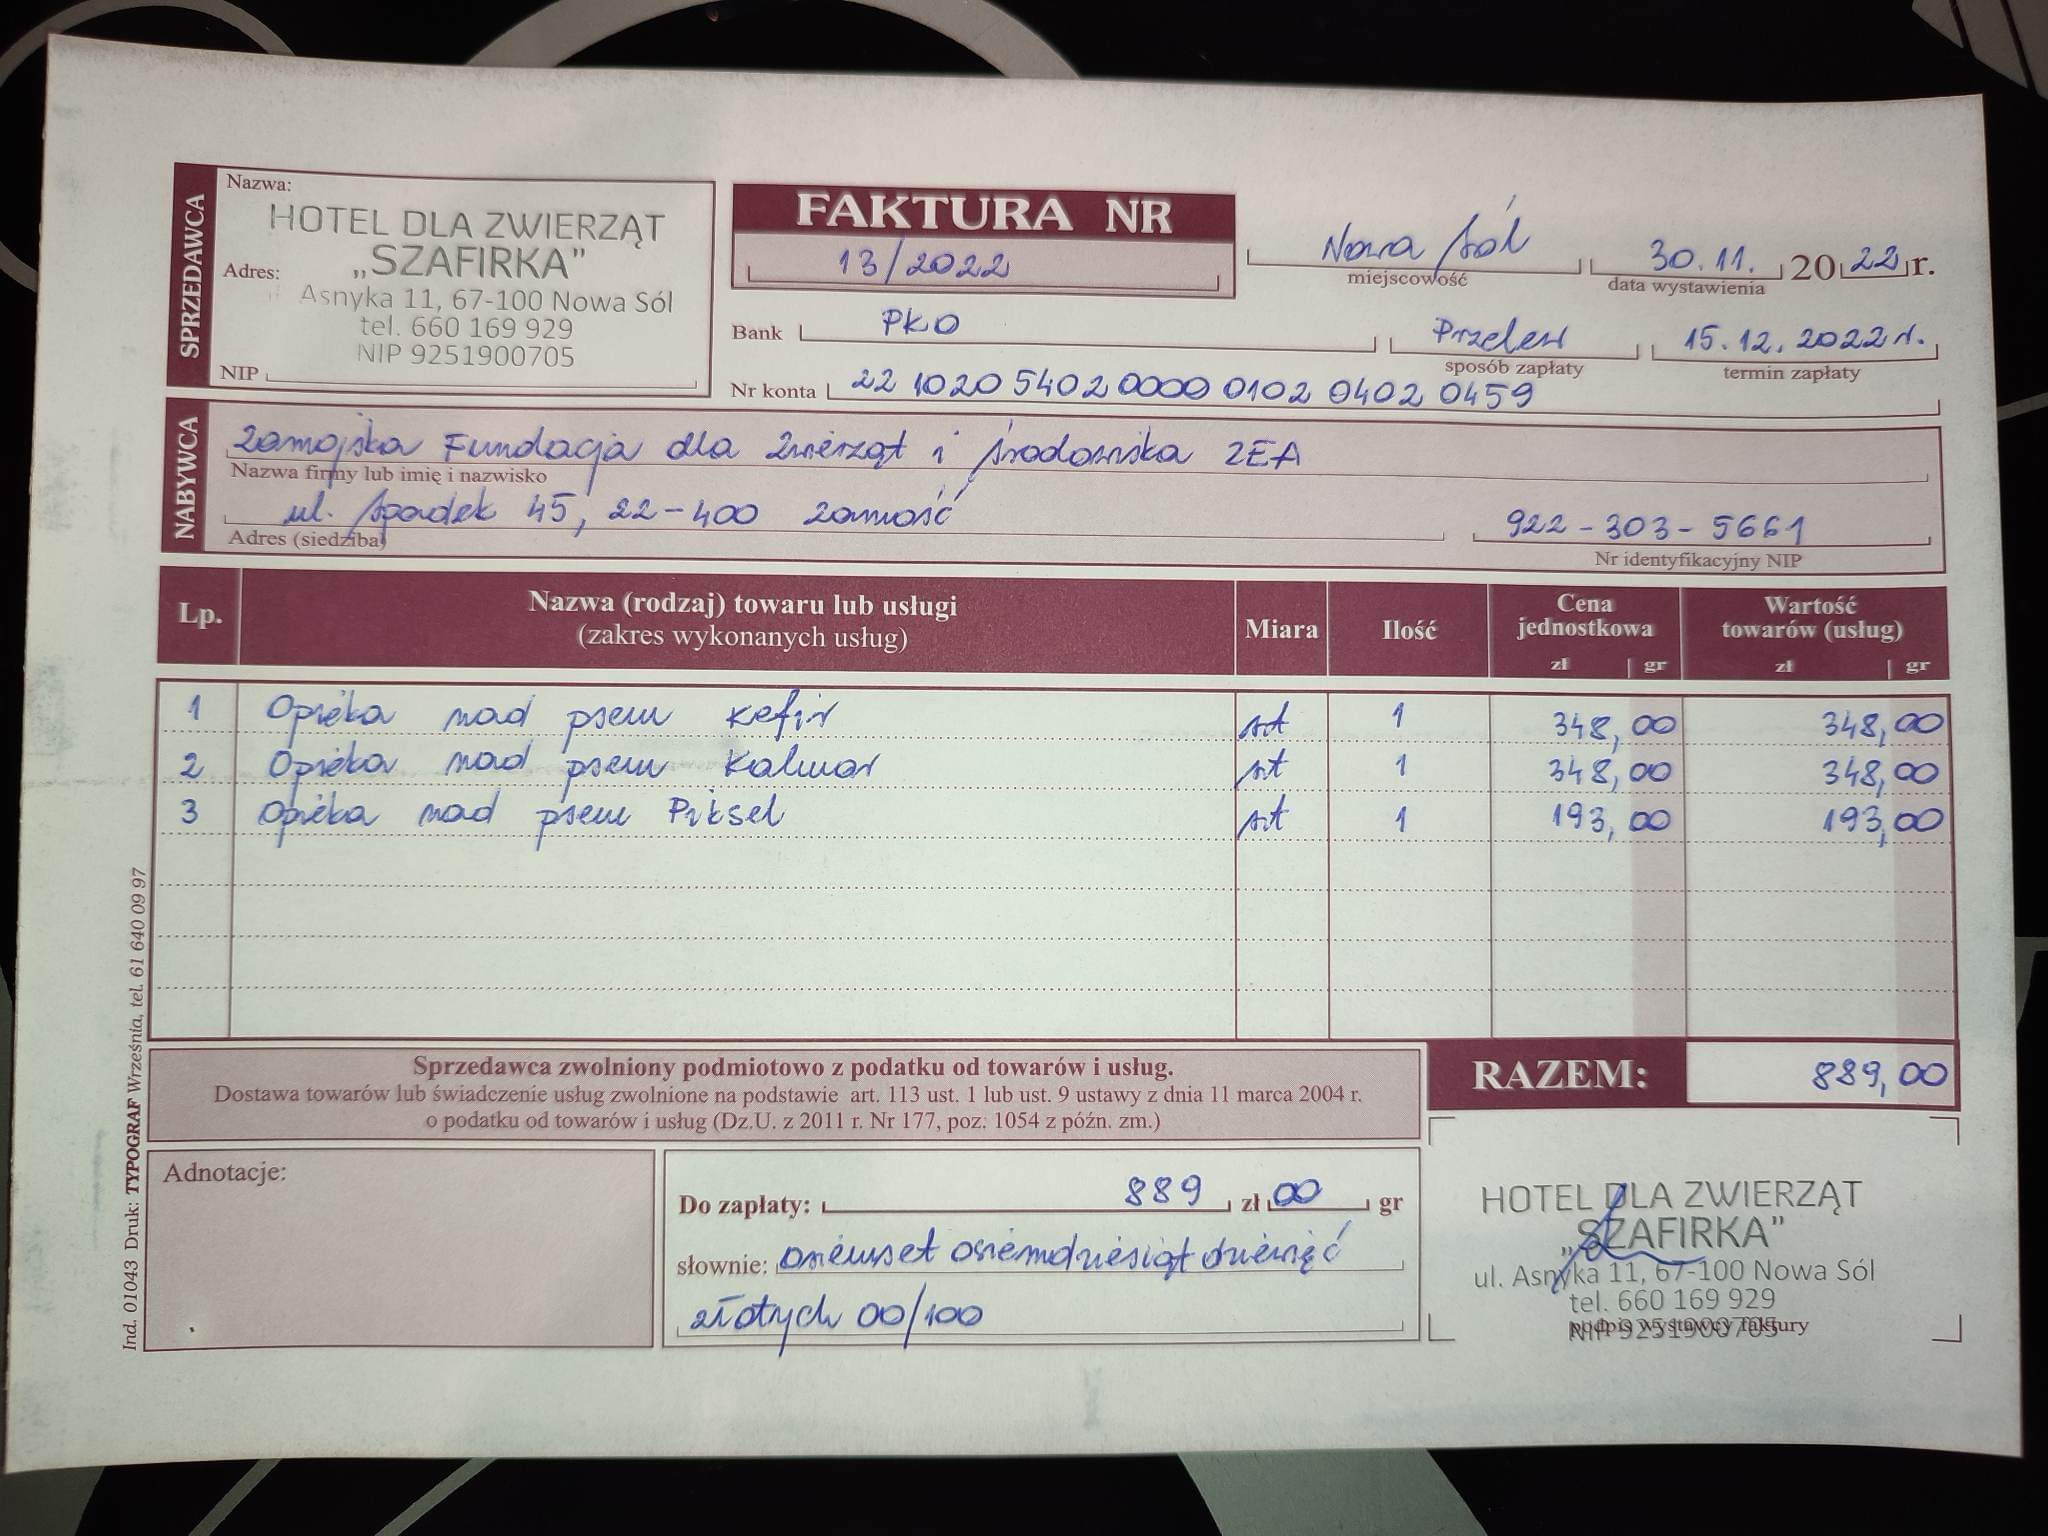 SPRZEDAWCA
Nazwa:
HOTEL DLA ZWIERZĄT
„SZAFIRKA”
Adres:
Asnyka 11, 67-100 Nowa Sól
tel. 660 169 929
NIP 9251900705
NIP
FAKTURA NR
13/2022
Nowa Sól
miejscowość
30.11. 2022 r.
data wystawienia
Bank PKO
Przelew
sposób zapłaty
15.12.2022 r.
termin zapłaty
Nr konta 22 1020 5402 0000 0102 0402 0459
NABYWCA
Zamojska Fundacja dla Zwierząt i Środowiska ZEA
Nazwa firmy lub imię i nazwisko
ul. Spadek 45, 22-400 Zamość
Adres (siedziba)
922-303-5661
Nr identyfikacyjny NIP
Lp. Nazwa (rodzaj) towaru lub usługi (zakres wykonanych usług) Miara Ilość Cena jednostkowa zł gr Wartość towarów (usług) zł gr
1 Opieka nad psem Kefir szt 1 348,00 348,00
2 Opieka nad psem Kalmar szt 1 348,00 348,00
3 Opieka nad psem Piksel szt 1 193,00 193,00
Sprzedawca zwolniony podmiotowo z podatku od towarów i usług.
Dostawa towarów lub świadczenie usług zwolnione na podstawie art. 113 ust. 1 lub ust. 9 ustawy z dnia 11 marca 2004 r.
o podatku od towarów i usług (Dz.U. z 2011 r. Nr 177, poz. 1054 z późn. zm.)
RAZEM: 889,00
Adnotacje:
Do zapłaty: 889 zł 00 gr
słownie: osiemset osiemdziesiąt dziewięć
złotych 00/100
HOTEL DLA ZWIERZĄT
„SZAFIRKA”
ul. Asnyka 11, 67-100 Nowa Sól
tel. 660 169 929
NIP 9251900705
podpis wystawcy faktury
Ind. 01043 Druk: TYPOGRAF Września, tel. 61 640 09 97